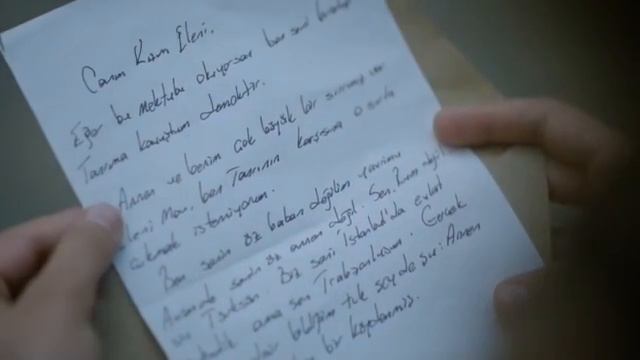 Canım Kızım Eleni.
Eğer bu mektubu okuyorsan ben seni bırakıp
Tanrıma kavuştum demektir.
Annen ve benim çok büyük bir sırrımız var
Eleni Mou, ben Tanrının karşısına o sırla
çıkmak istemiyorum.
Ben senin öz baban değilim yavrum
Annende senin öz annen değil. Sen Rum değil
Türksün. Biz seni İstanbul'da evlat
ama sen Trabzonlusun. Gerçek
bildiğim tek şeyde şu: Annen
bir kaptanmış.